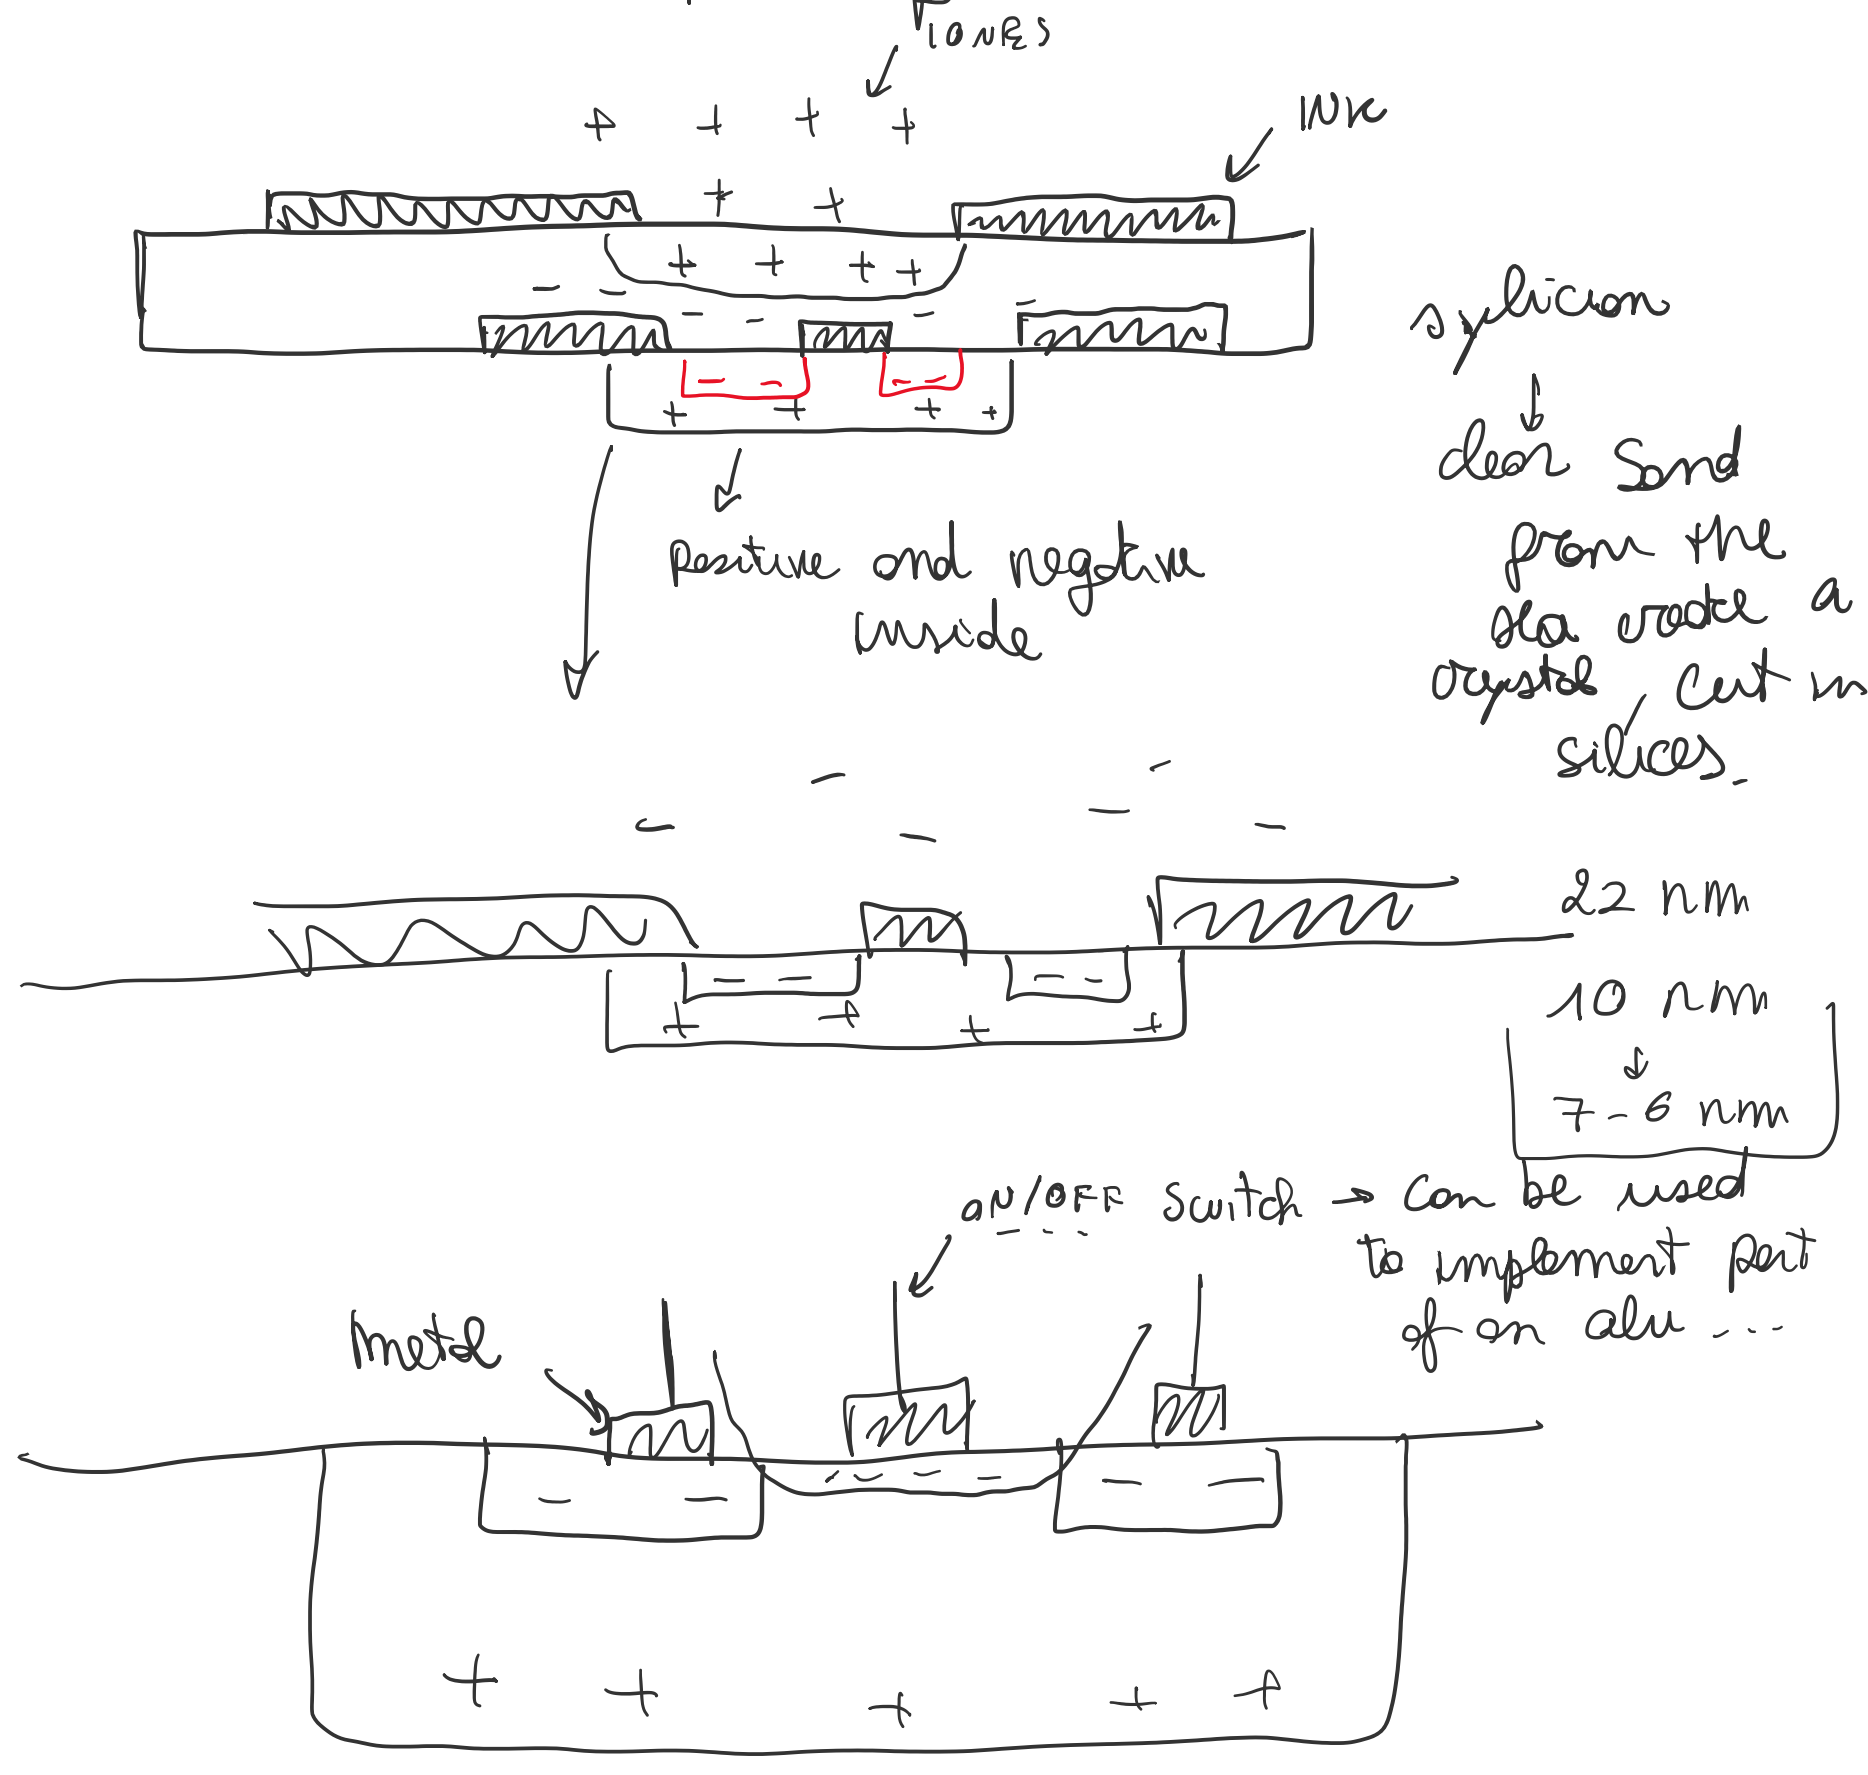 IONES
INK
sylicion
clean sand
from the
sea create a
crystal, cut in
silices.
Positive and negative
inside
22 nm
10 nm
7-6 nm
ON/OFF switch → can be used
to implement part
of an alu ...
metal